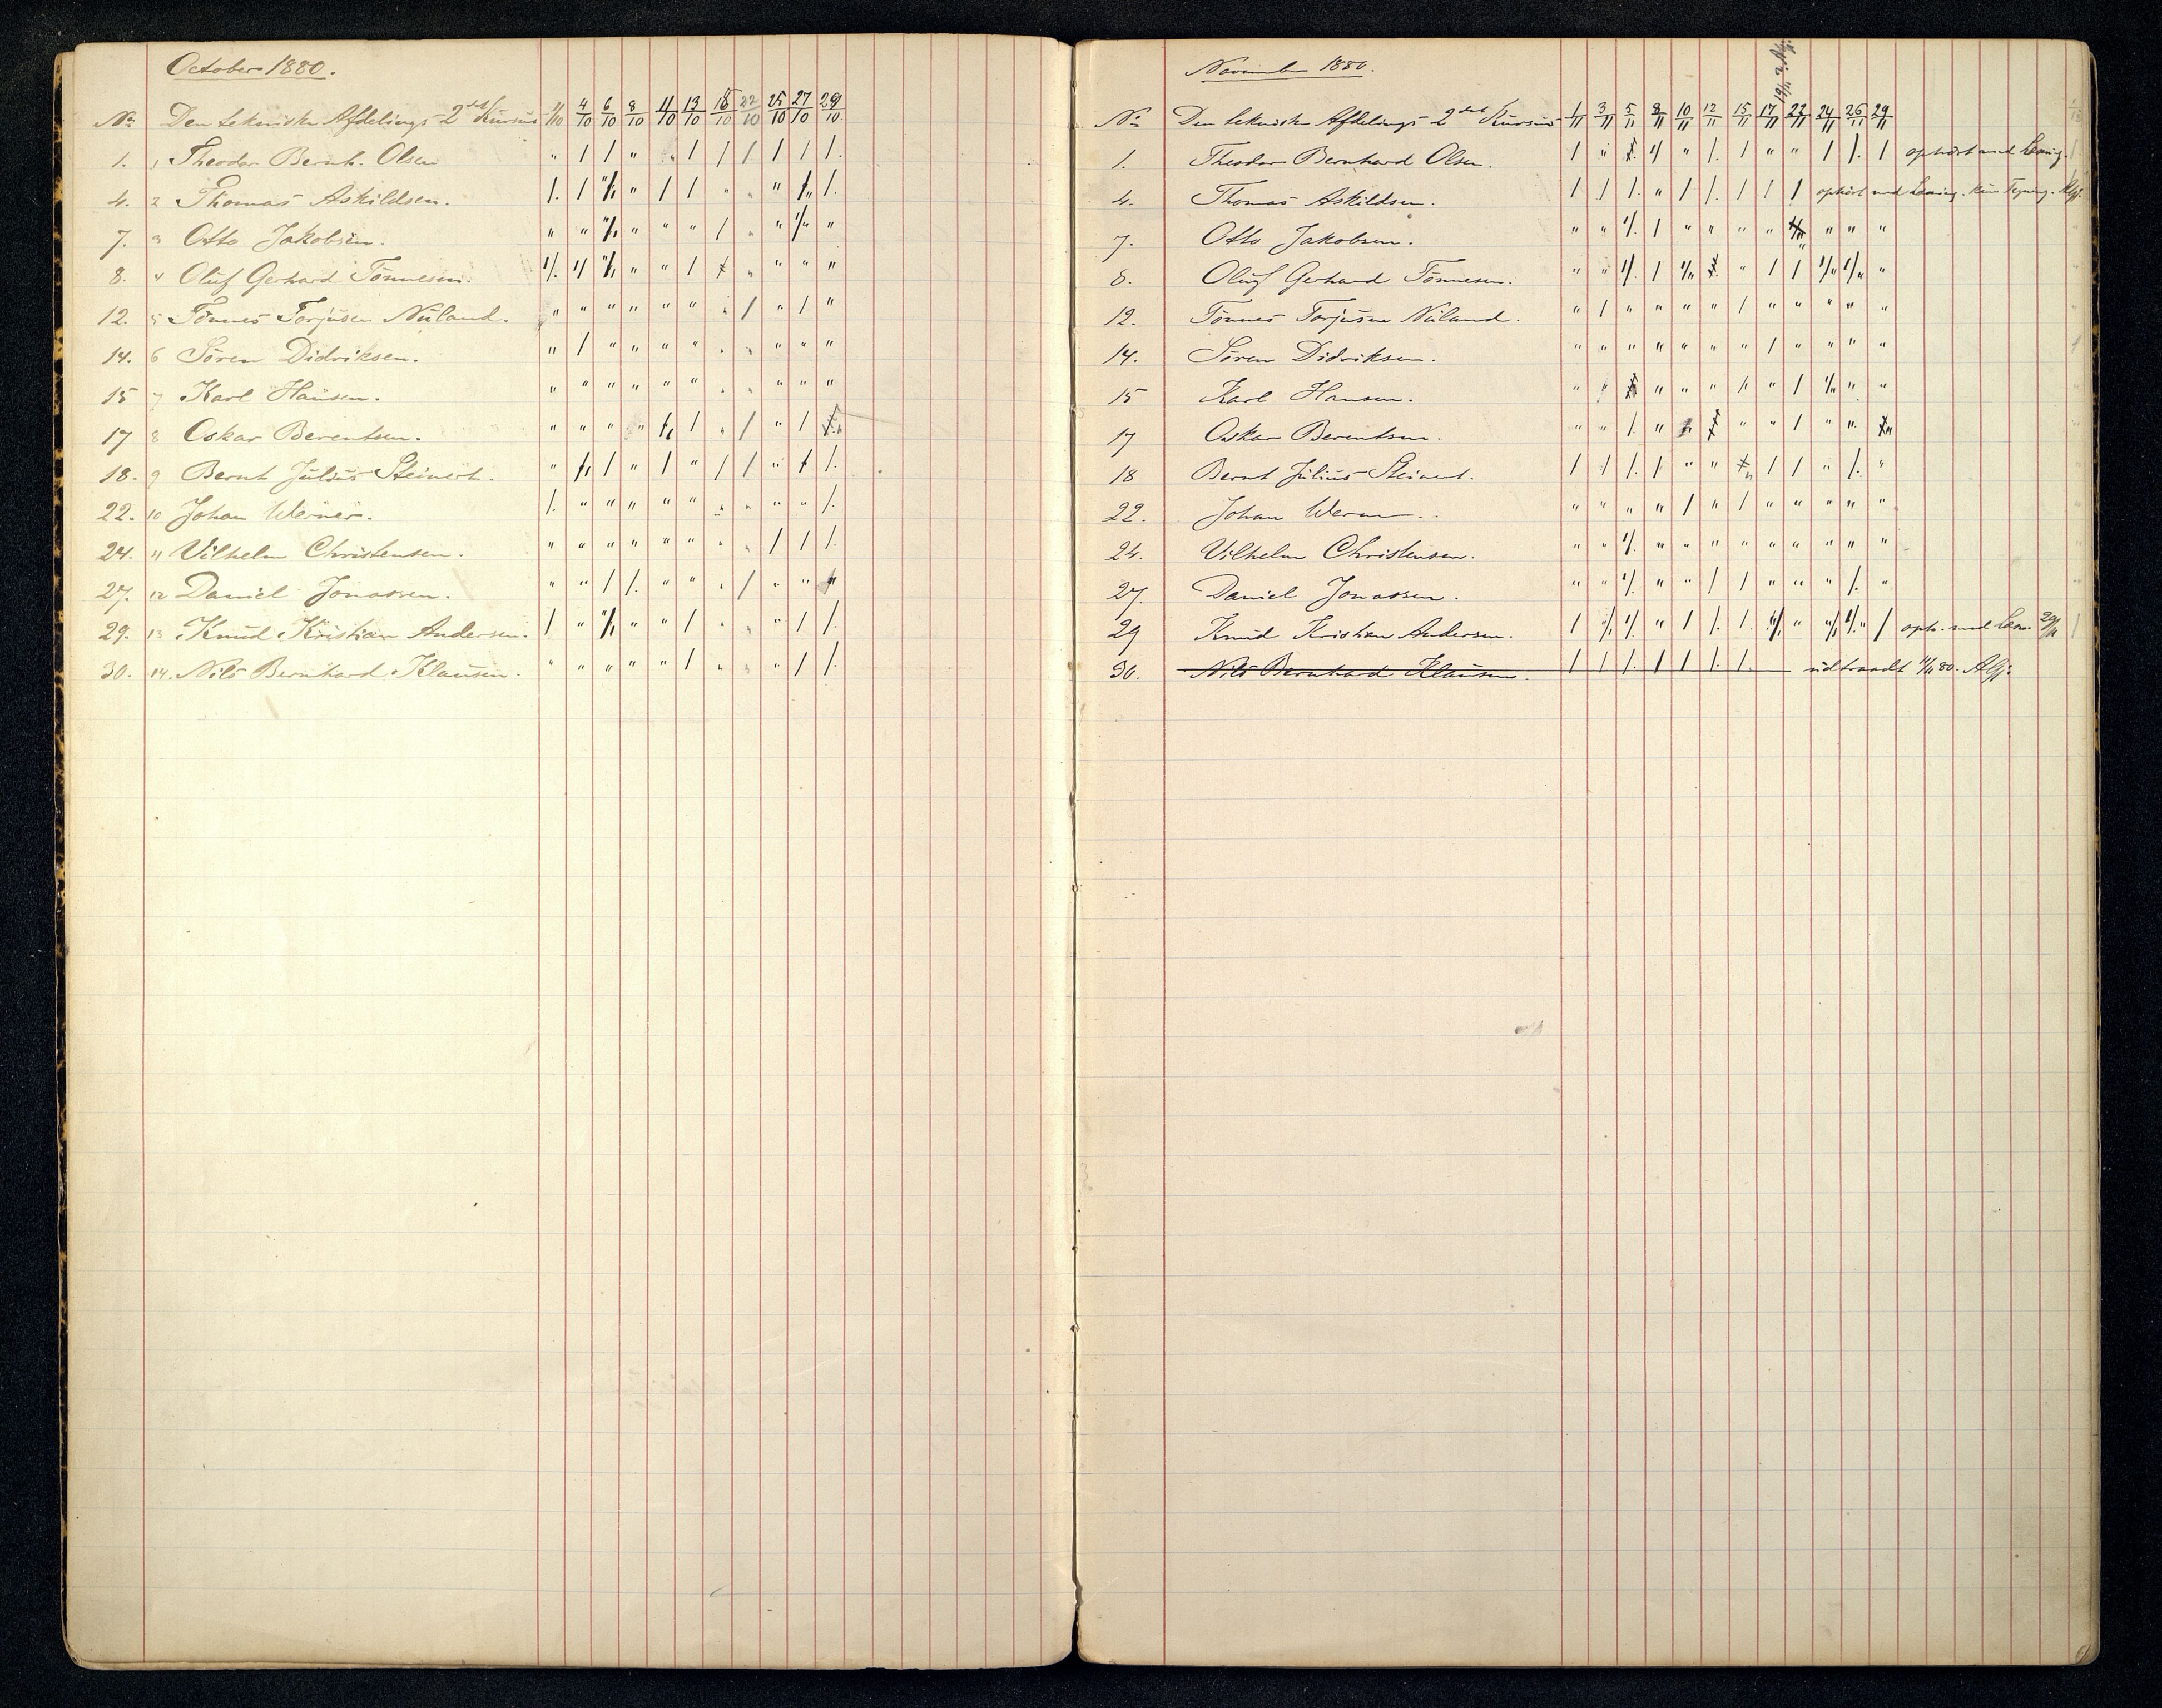 October 1880.
No Den tekniske Afdelings 2det Kursus 1/10 4/10 6/10 8/10 11/10 13/10 18/10 22/10 25/10 27/10 29/10.
1. 1 Theodor Bernh. Olsen " / / " " / / / / / /.
4. 2 Thomas Askildsen.
7. 3 Otto Jakobsen.
8. 4 Oluf Gerhard Tönnesen.
12. 5 Tönnes Torjusen Nuland.
14. 6 Sören Didriksen. " / " " " " " " " " "
15 7 Karl Hansen. " " " " " " " " " " "
17 8 Oskar Berentsen.
18. 9 Bernt Julius Steinert.
22. 10 Johan Werner. /. " " " " " " " " " /.
24. 11 Vilhelm Christensen. " " " " " " " " / / /.
27. 12 Daniel Jonassen.
29. 13 Knud Kristian Andersen.
30. 14. Nils Bernhard Klausen. " " " " " / " " " / /.
November 1880.
No Den tekniske Afdelings 2det Kursus 1/11 3/11 5/11 8/11 10/11 12/11 15/11 17/11 22/11 24/11 26/11 29/11
1. Theodor Bernhard Olsen. ophört med Læsning.
4. Thomas Askildsen. ophört med Læsning. kun Tegning.
7. Otto Jakobsen.
8. Oluf Gerhard Tönnesen.
12. Tönnes Torjusen Nuland. " / " " " " / " " " " "
14. Sören Didriksen. " " " " " " " / " " " "
15 Karl Hansen.
17 Oskar Berentsen.
18 Bernt Julius Steinert.
22. Johan Werner. " " " " / " / " " " " "
24. Vilhelm Christensen.
27. Daniel Jonassen.
29 Knud Kristian Andersen. oph. med Læsn. 29/11
30. Nils Bernhard Klausen. / / /. / / /. /. udtraadt 80.